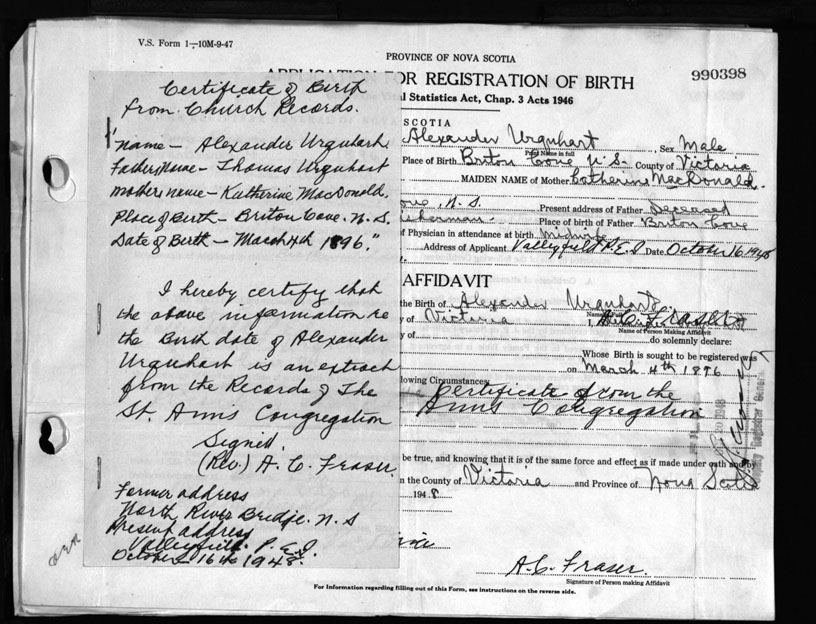 V.S. Form 1—10M-9-47
PROVINCE OF NOVA SCOTIA
APPLICATION FOR REGISTRATION OF BIRTH
990398
l Statistics Act, Chap. 3 Acts 1946
Certificate of Birth
from Church Records.
"Name — Alexander Urquhart
Fathers Name — Thomas Urquhart
Mothers name — Katherine MacDonald.
Place of Birth — Briton Cove. N. S.
Date of Birth — March 4th 1896."
I hereby certify that
the above information re
the Birth date of Alexander
Urquhart is an extract
from the Records of The
St. Anns Congregation
Signed.
(Rev.) A. C. Fraser.
Former address
North River Bridge. N. S
Present address
Valleyfield. P. E. I.
October 16th 1948.
SCOTIA
Alexander Urquhart, Sex Male
Print Name in full
Place of Birth Briton Cove N. S. County of Victoria
MAIDEN NAME of Mother Catherine MacDonald.
ove, N. S. Present address of Father Deceased
isherman. Place of Birth of Father Briton Cove
of Physician in attendance at birth midwife
Address of Applicant Valleyfield P. E. I. Date October 16, 1948
AFFIDAVIT
the Birth of Alexander Urquhart
y of Victoria I, A. C. Fraser
Name of Person Making Affidavit
y of do solemnly declare:
Whose Birth is sought to be registered was
on March 4th 1896
lowing Circumstances
Certificate from the
Anns Congregation
be true, and knowing that it is of the same force and effect as if made under oath and by
n the County of Victoria and Province of Nova Scotia
1948
A. C. Fraser.
Signature of Person making Affidavit
For Information regarding filling out of this Form, see instructions on the reverse side.
Deputy Registrar General